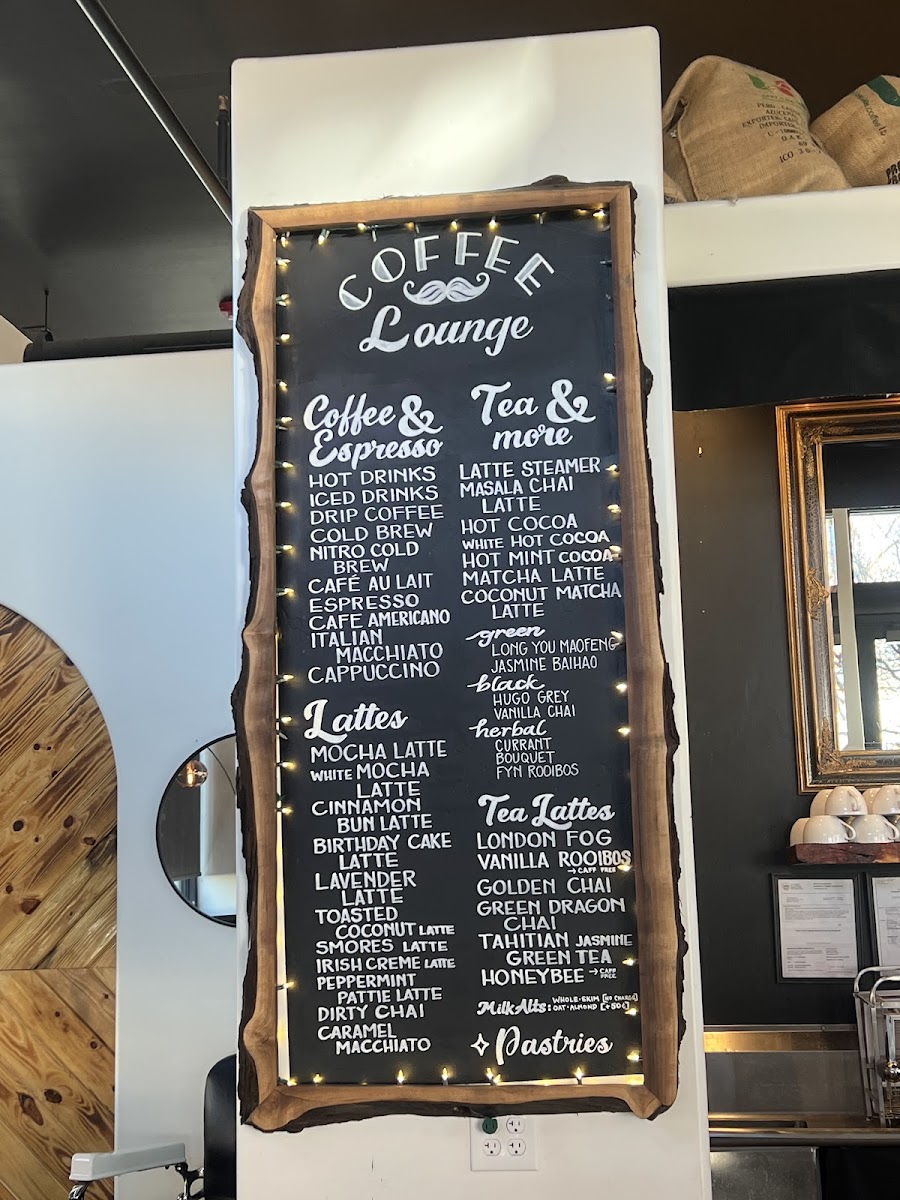 COFFEE
Lounge
Coffee &
Espresso
HOT DRINKS
ICED DRINKS
DRIP COFFEE
COLD BREW
NITRO COLD
BREW
CAFÉ AU LAIT
ESPRESSO
CAFE AMERICANO
ITALIAN
MACCHIATO
CAPPUCCINO
Lattes
MOCHA LATTE
WHITE MOCHA
LATTE
CINNAMON
BUN LATTE
BIRTHDAY CAKE
LATTE
LAVENDER
LATTE
TOASTED
COCONUT LATTE
SMORES LATTE
IRISH CREME LATTE
PEPPERMINT
PATTIE LATTE
DIRTY CHAI
CARAMEL
MACCHIATO
Tea &
more
LATTE STEAMER
MASALA CHAI
LATTE
HOT COCOA
WHITE HOT COCOA
HOT MINT COCOA
MATCHA LATTE
COCONUT MATCHA
LATTE
green
LONG YOU MAOFENG
JASMINE BAIHAO
black
HUGO GREY
VANILLA CHAI
herbal
CURRANT
BOUQUET
FYN ROOIBOS
Tea Lattes
LONDON FOG
VANILLA ROOIBOS
→ CAFF FREE
GOLDEN CHAI
GREEN DRAGON
CHAI
TAHITIAN JASMINE
GREEN TEA
HONEYBEE → CAFF
FREE
Milk Alts: WHOLE·SKIM [NO CHARGE]
OAT·ALMOND [+50¢]
Pastries
PERU
EXPORTER
ICO 30